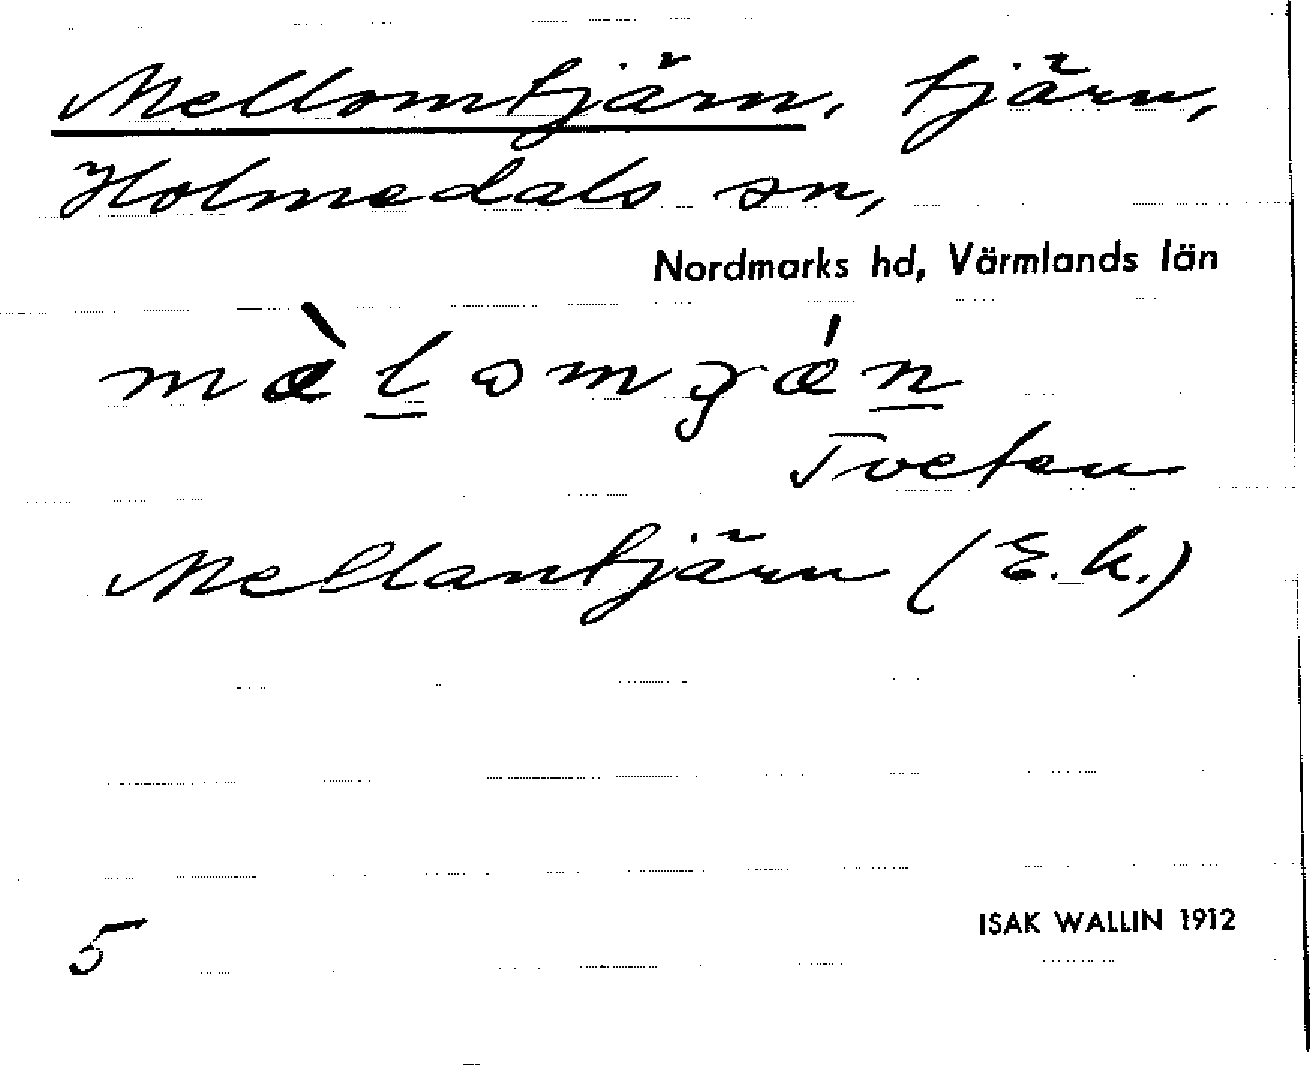 Mellomtjärn, tjärn,
Holmedals sn,
Nordmarks hd, Värmlands län
mæ̀l̲omjǽn̲
Tveten
Mellantjärn (E.k.)
5
ISAK WALLIN 1912